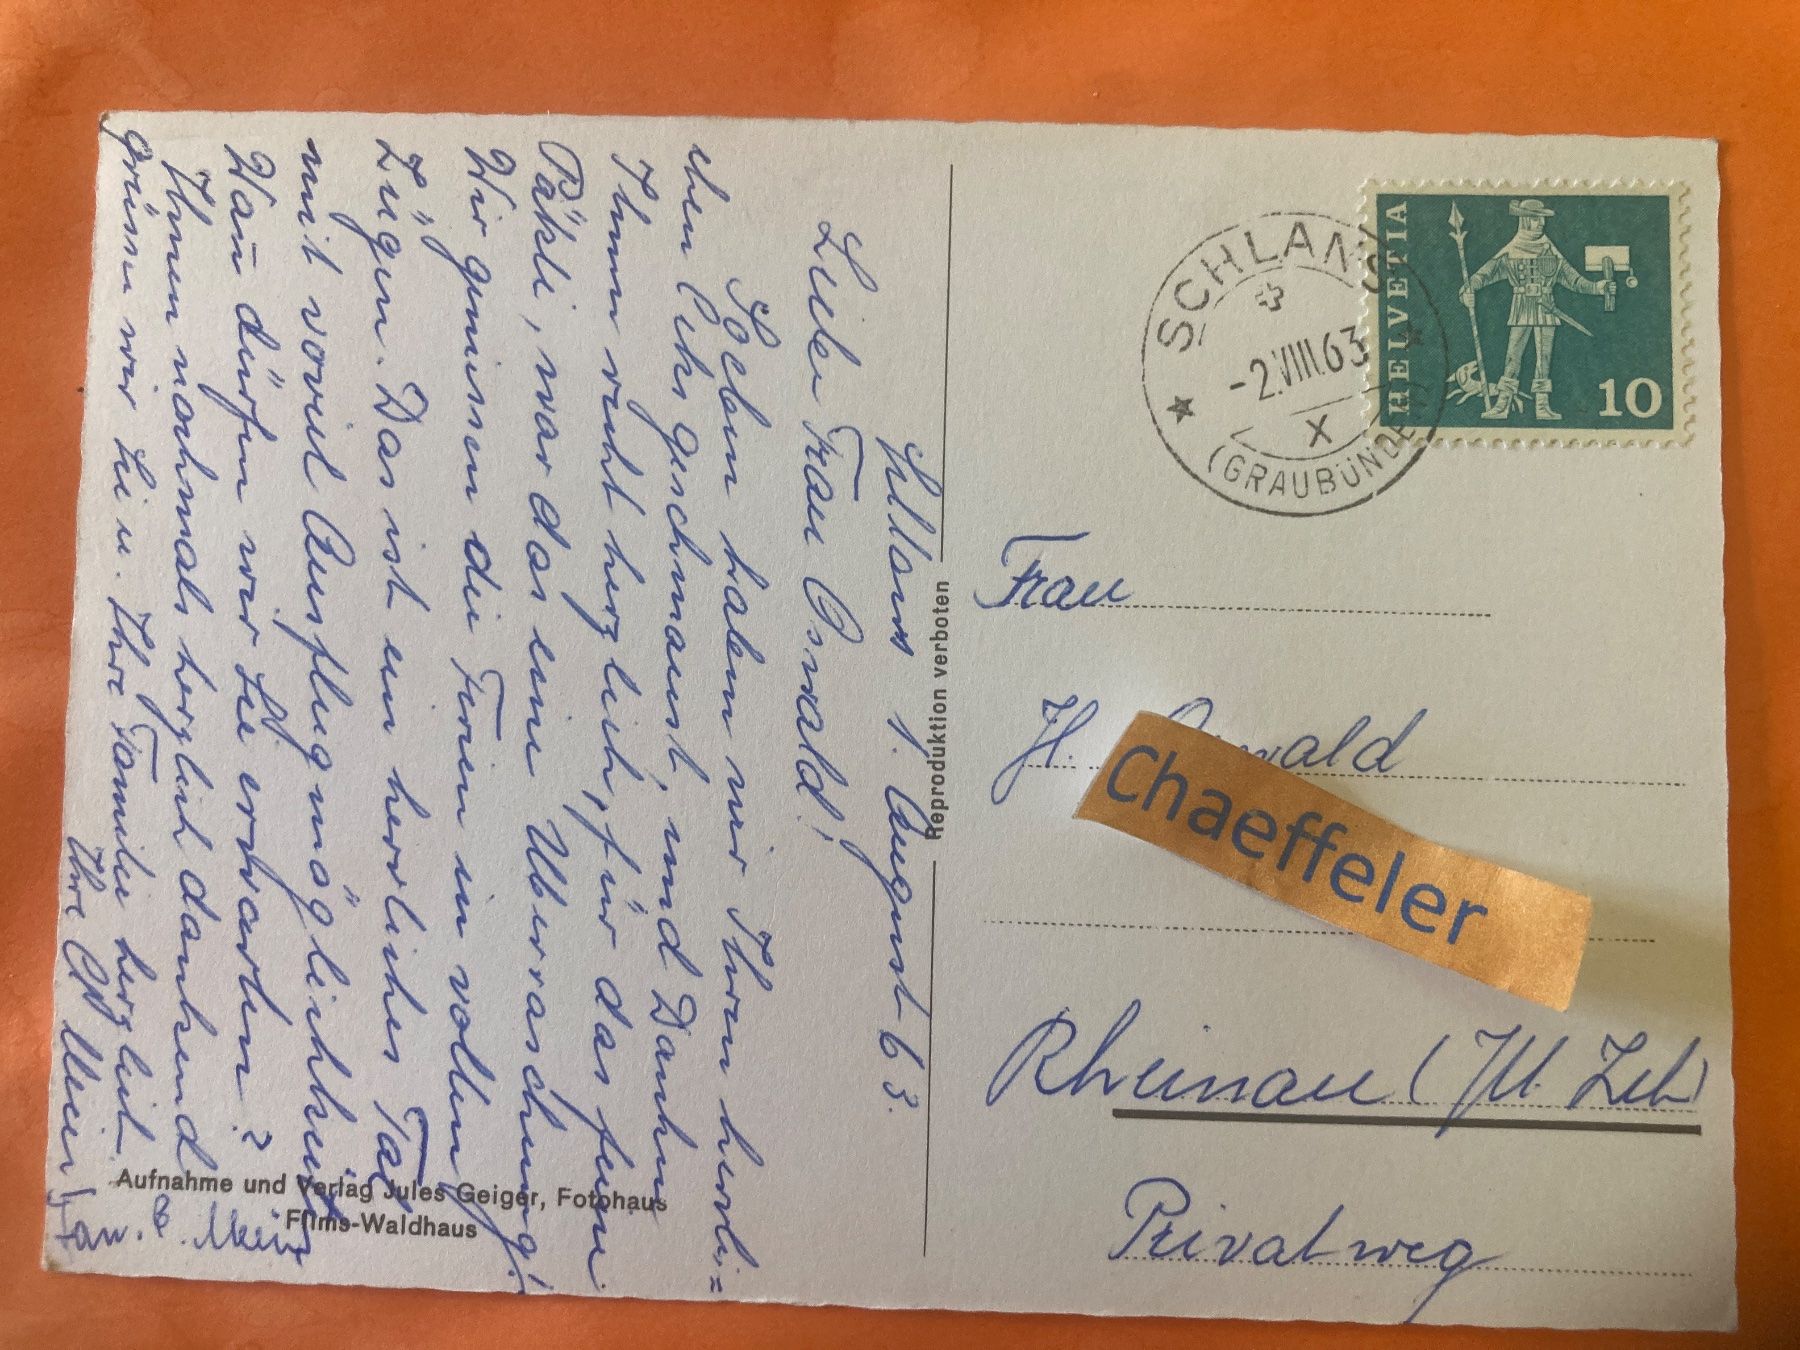 Schlans 1. August 63.
Liebe Frau Oswald!
Soeben haben wir Ihren herrli=
chen Cake geschmaust, und Danken
Ihnen recht herzlich, für das feine
Päkli, war das eine Überraschung!
Wir geniessen die Ferien in vollen
Zügen. Das ist ein herrliches Tal
mit soviel Ausflugmöglichkeit
Wan dürfen wir Sie erwarten?
Ihnen nochmals herzlich dankend
grüssen wir Sie u. Ihre Familie herzlich.
Ihre
Meier
Fam. Meier
Aufnahme und Verlag Jules Geiger, Fotohaus
Flims-Waldhaus
Reproduktion verboten
SCHLANS
-2.VIII.63
X
(GRAUBÜNDEN)
HELVETIA
10
Frau
H. Oswald
Chaeffeler
Rheinau (Kt. Zch)
Privatweg